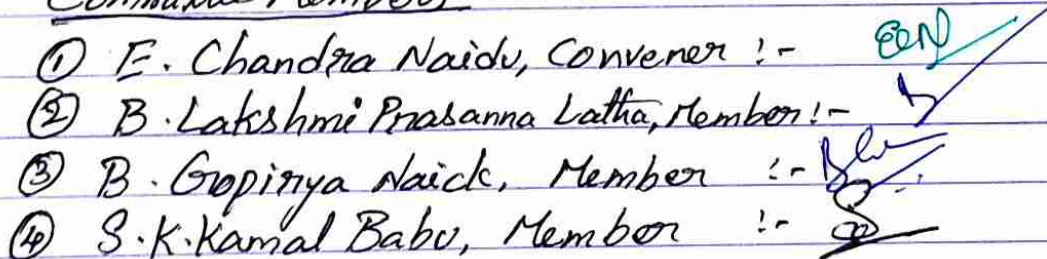 ① E. Chandra Naidu, Convener :- ECN
② B. Lakshmi Prasanna Latha, Member :-
③ B. Gopirya Naick, Member :-
④ S.K. Kamal Babu, Member :-